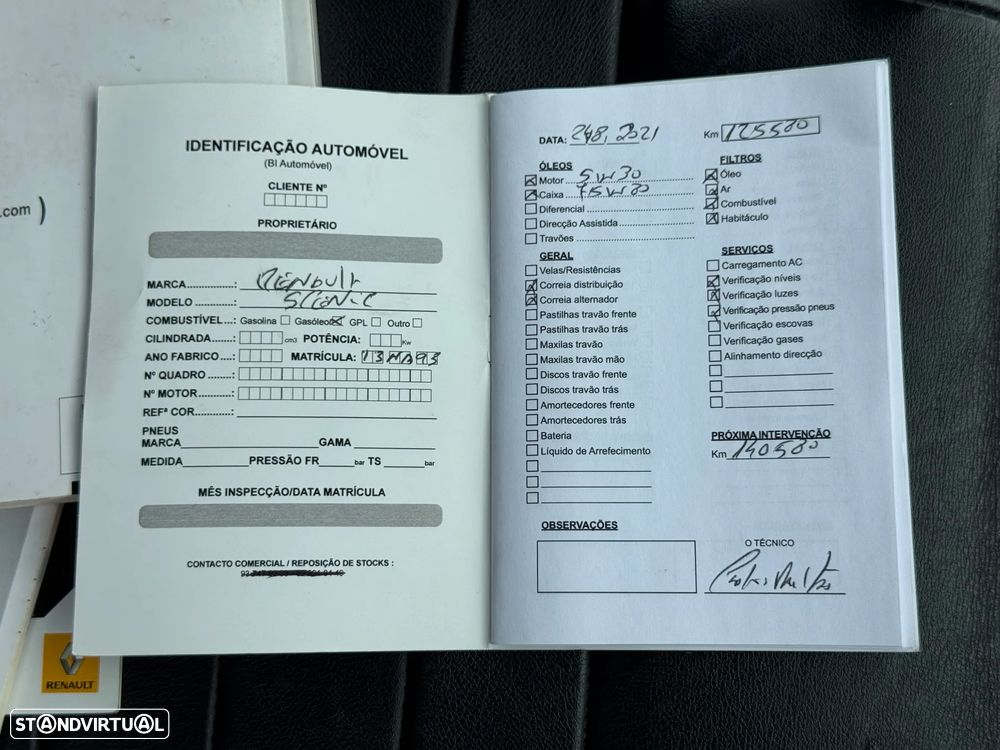 .com )
IDENTIFICAÇÃO AUTOMÓVEL
(BI Automóvel)
CLIENTE Nº
PROPRIETÁRIO
MARCA..............: RENAULT
MODELO ............: SCENIC
COMBUSTÍVEL...: Gasolina Gasóleo GPL Outro
CILINDRADA .....: cm3 POTÊNCIA: Kw
ANO FABRICO ....: MATRÍCULA: 13
Nº QUADRO .......:
Nº MOTOR..........:
REFª COR...........:
PNEUS
MARCA GAMA
MEDIDA PRESSÃO FR bar TS bar
MÊS INSPECÇÃO/DATA MATRÍCULA
CONTACTO COMERCIAL / REPOSIÇÃO DE STOCKS :
DATA: 2021 Km 125580
ÓLEOS
Motor 5W30
Caixa 75W80
Diferencial
Direcção Assistida
Travões
GERAL
Velas/Resistências
Correia distribuição
Correia alternador
Pastilhas travão frente
Pastilhas travão trás
Maxilas travão
Maxilas travão mão
Discos travão frente
Discos travão trás
Amortecedores frente
Amortecedores trás
Bateria
Líquido de Arrefecimento
OBSERVAÇÕES
FILTROS
Óleo
Ar
Combustível
Habitáculo
SERVIÇOS
Carregamento AC
Verificação níveis
Verificação luzes
Verificação pressão pneus
Verificação escovas
Verificação gases
Alinhamento direcção
PRÓXIMA INTERVENÇÃO
Km 140580
O TÉCNICO
RENAULT
STANDVIRTUAL